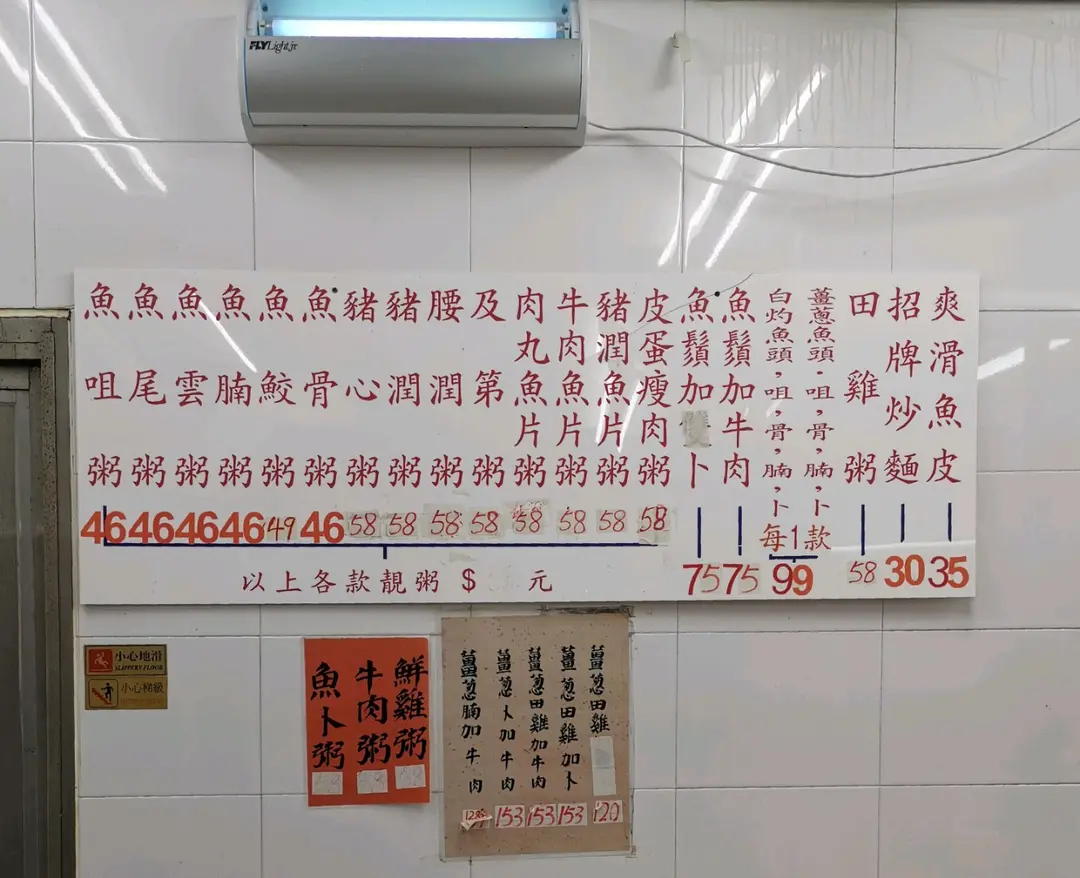 FLYLight.jr
爽滑魚皮
35
招牌炒麵
30
田雞粥
58
薑蔥魚頭，咀，骨，腩，卜
白灼魚頭，咀，骨，腩，卜
每1款
99
魚鬚加牛肉
75
魚鬚加雙卜
75
皮蛋瘦肉粥
58
豬潤魚片粥
58
牛肉魚片粥
58
肉丸魚片粥
58
及第粥
58
腰潤粥
58
豬潤粥
58
豬心粥
58
魚骨粥
46
魚鮫粥
49
魚腩粥
46
魚雲粥
46
魚尾粥
46
魚咀粥
46
以上各款靚粥 $ 元
小心地滑
SLIPPERY FLOOR
小心梯級
鮮雞粥
牛肉粥
魚卜粥
薑蔥田雞
120
薑蔥田雞加卜
153
薑蔥田雞加牛肉
153
薑蔥卜加牛肉
153
薑蔥腩加牛肉